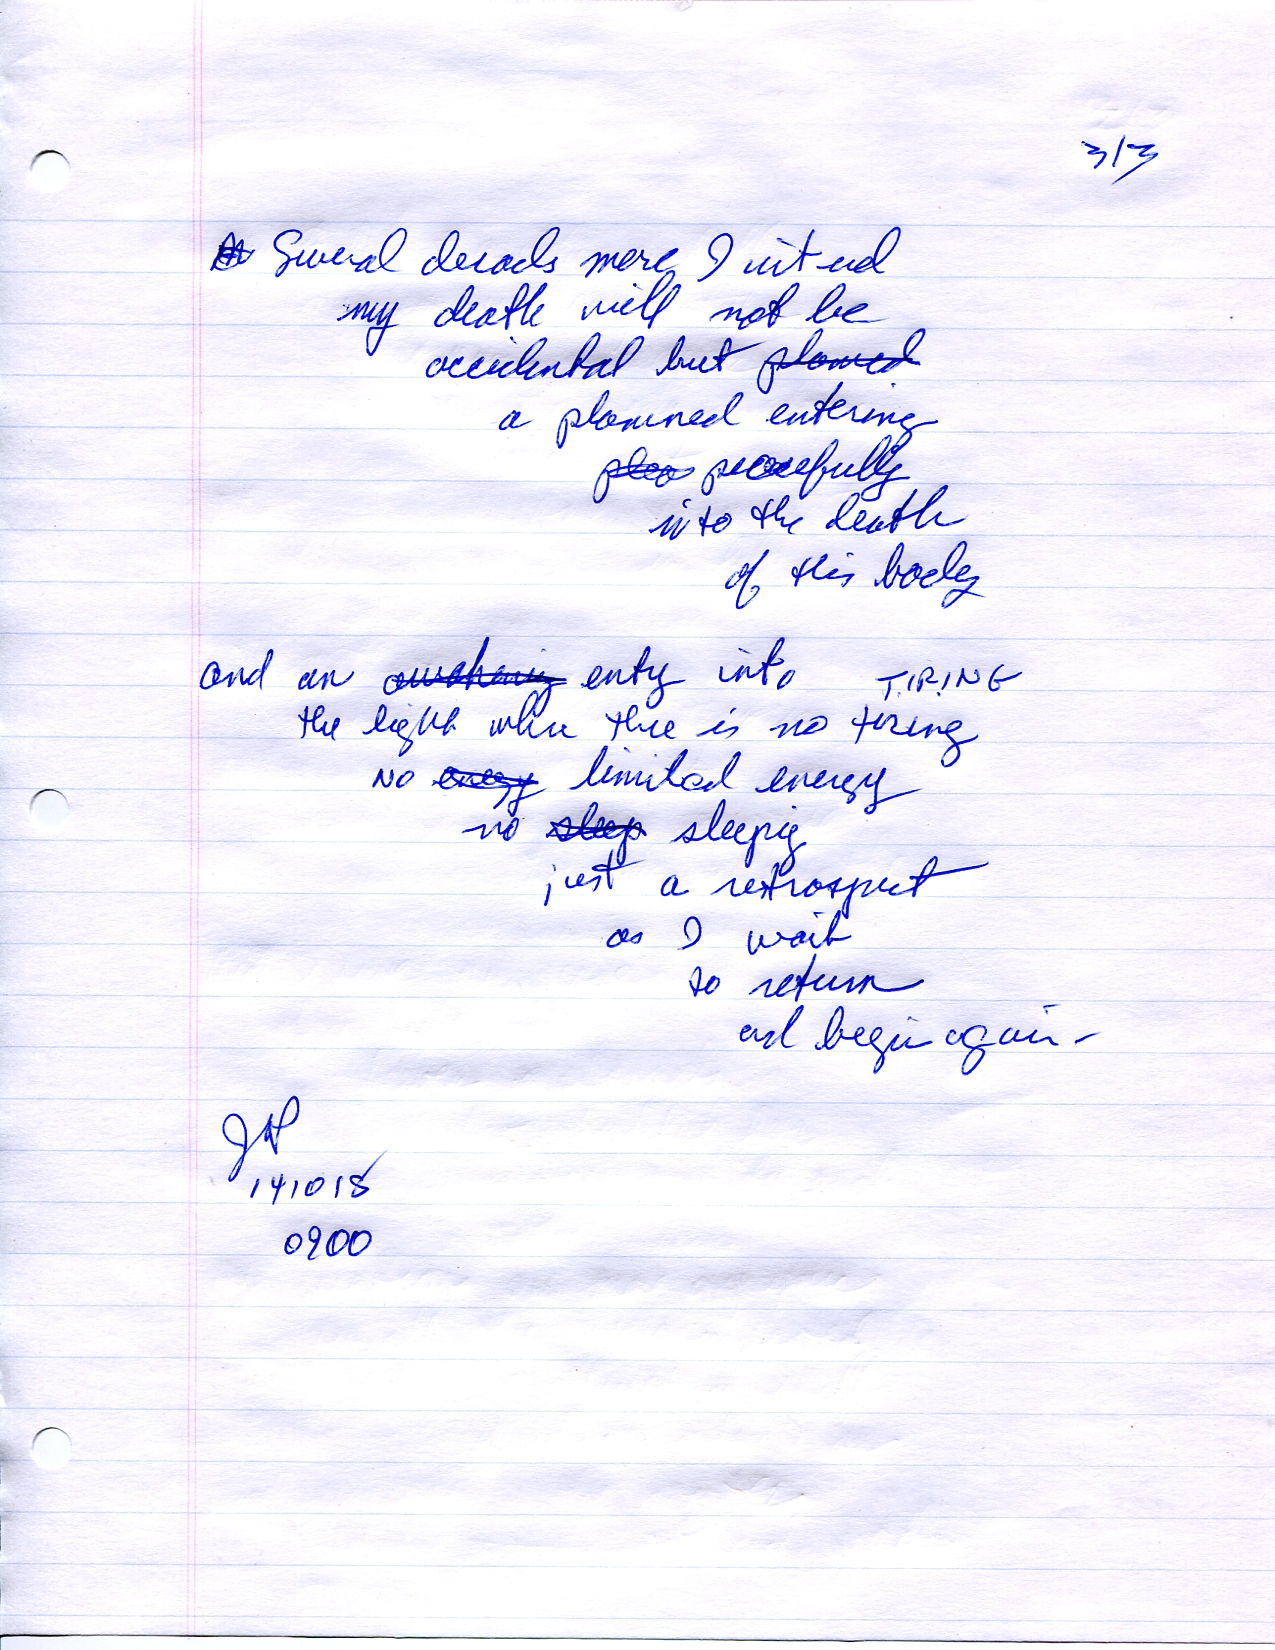 3/3
Several decads more I intend
my death will not be
accidental but planned
a planned entering
plea peacefully
into the death
of this body
and an awakening enty into TIRING
the light where there is no tiring
NO energy limited energy
no sleep sleeping
just a retrospect
as I wait
to return
and begin again -
141018
0900